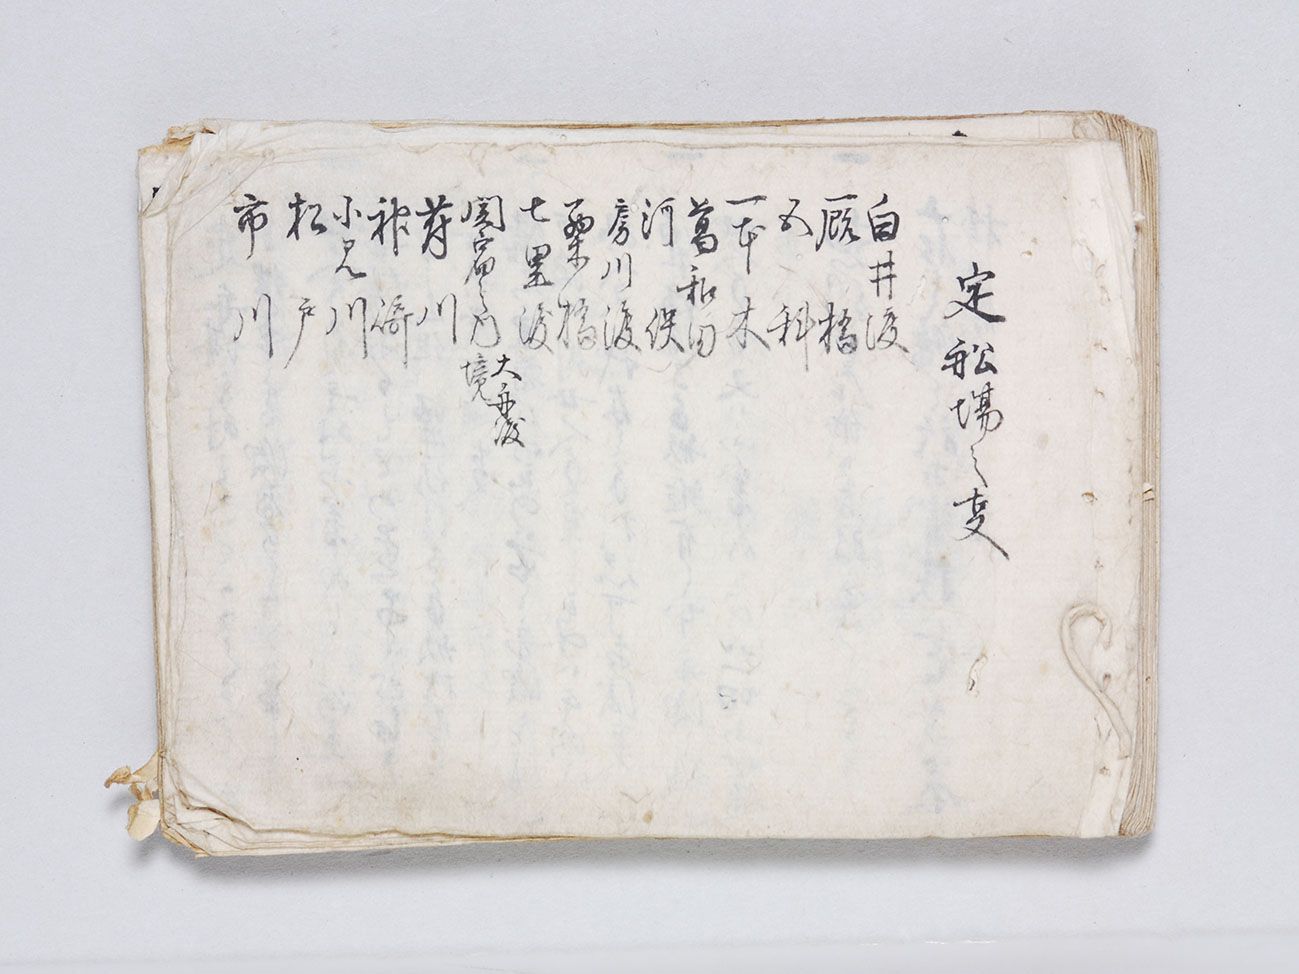 定船場之事
白井渡
厩橋
五科
一本木
葛和田
河俣
房川渡
栗橋
七里渡
関宿之内
大舟渡
境
府川
神崎
小見川
松戸
市川